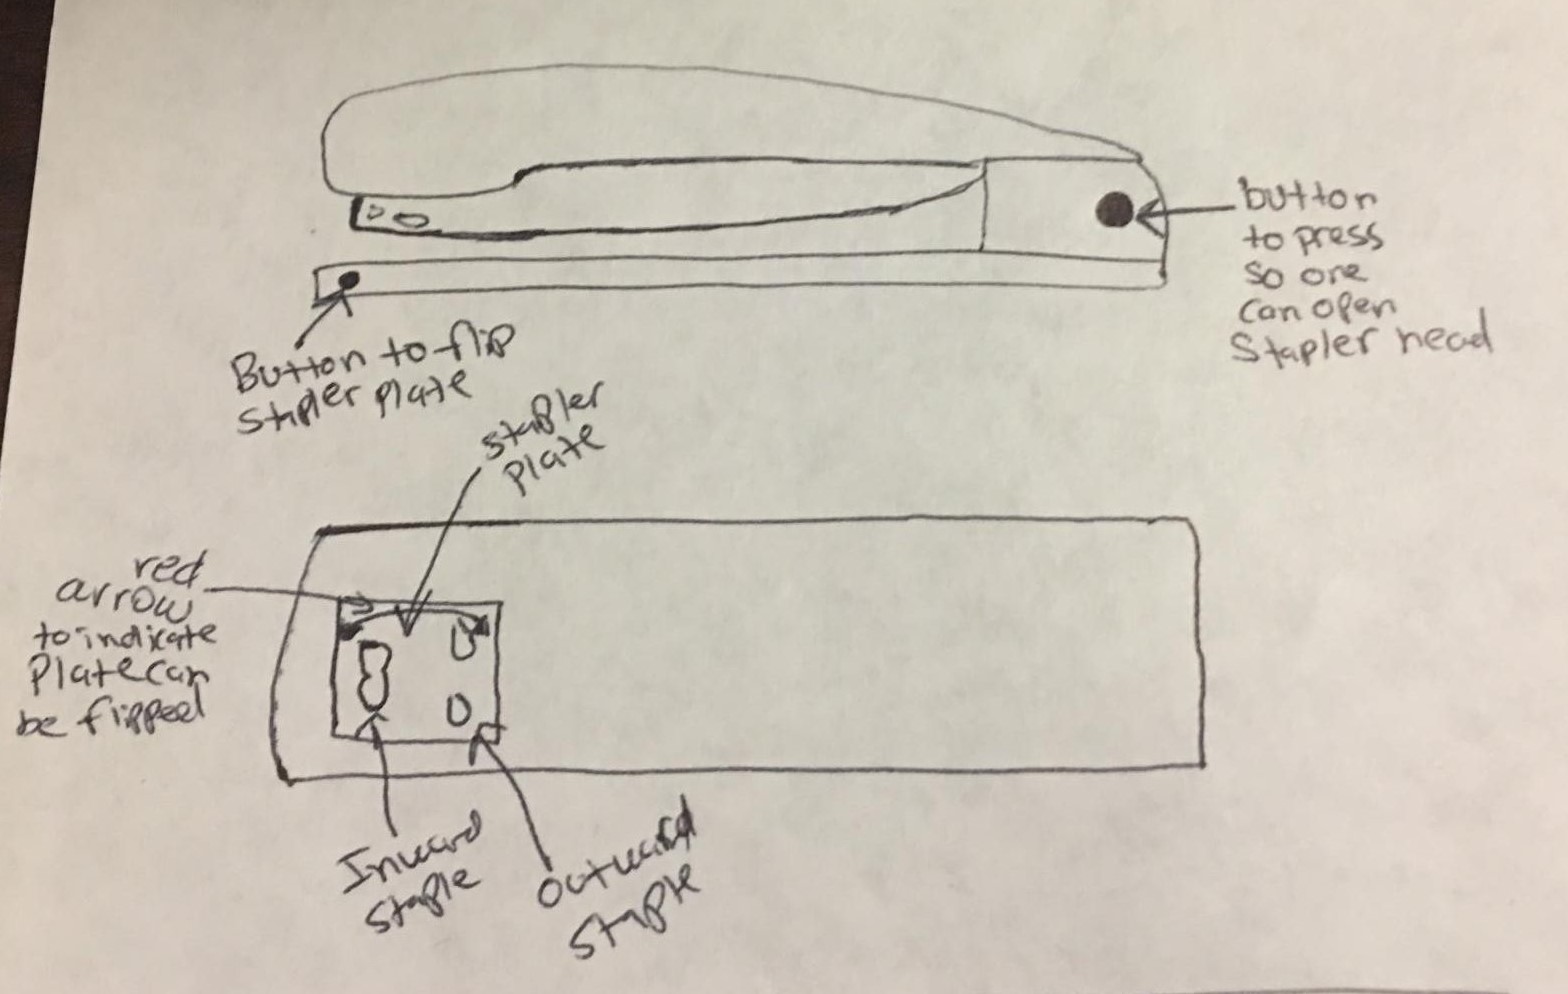 button
to press
so one
can open
Stapler head
Button to flip
Stapler plate
stapler
plate
red
arrow
to indicate
Plate can
be flipped
Inward
staple
outward
staple